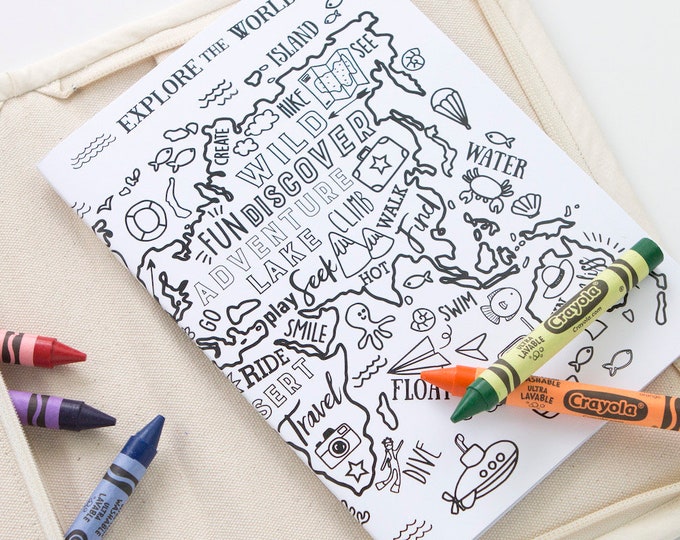 EXPLORE THE WORLD
ISLAND
SEE
HIKE
CREATE
WILD
DISCOVER
FUN
ADVENTURE
WATER
CLIMB
WALK
LAKE
Find
Seek
HOT
play
GO
SMILE
SWIM
RIDE
FLOAT
Travel
DIVE
Crayola
ULTRA
LAVABLE
WASHABLE
ULTRA
LAVABLE
Crayola
WASHABLE
ULTRA
LAVABLE